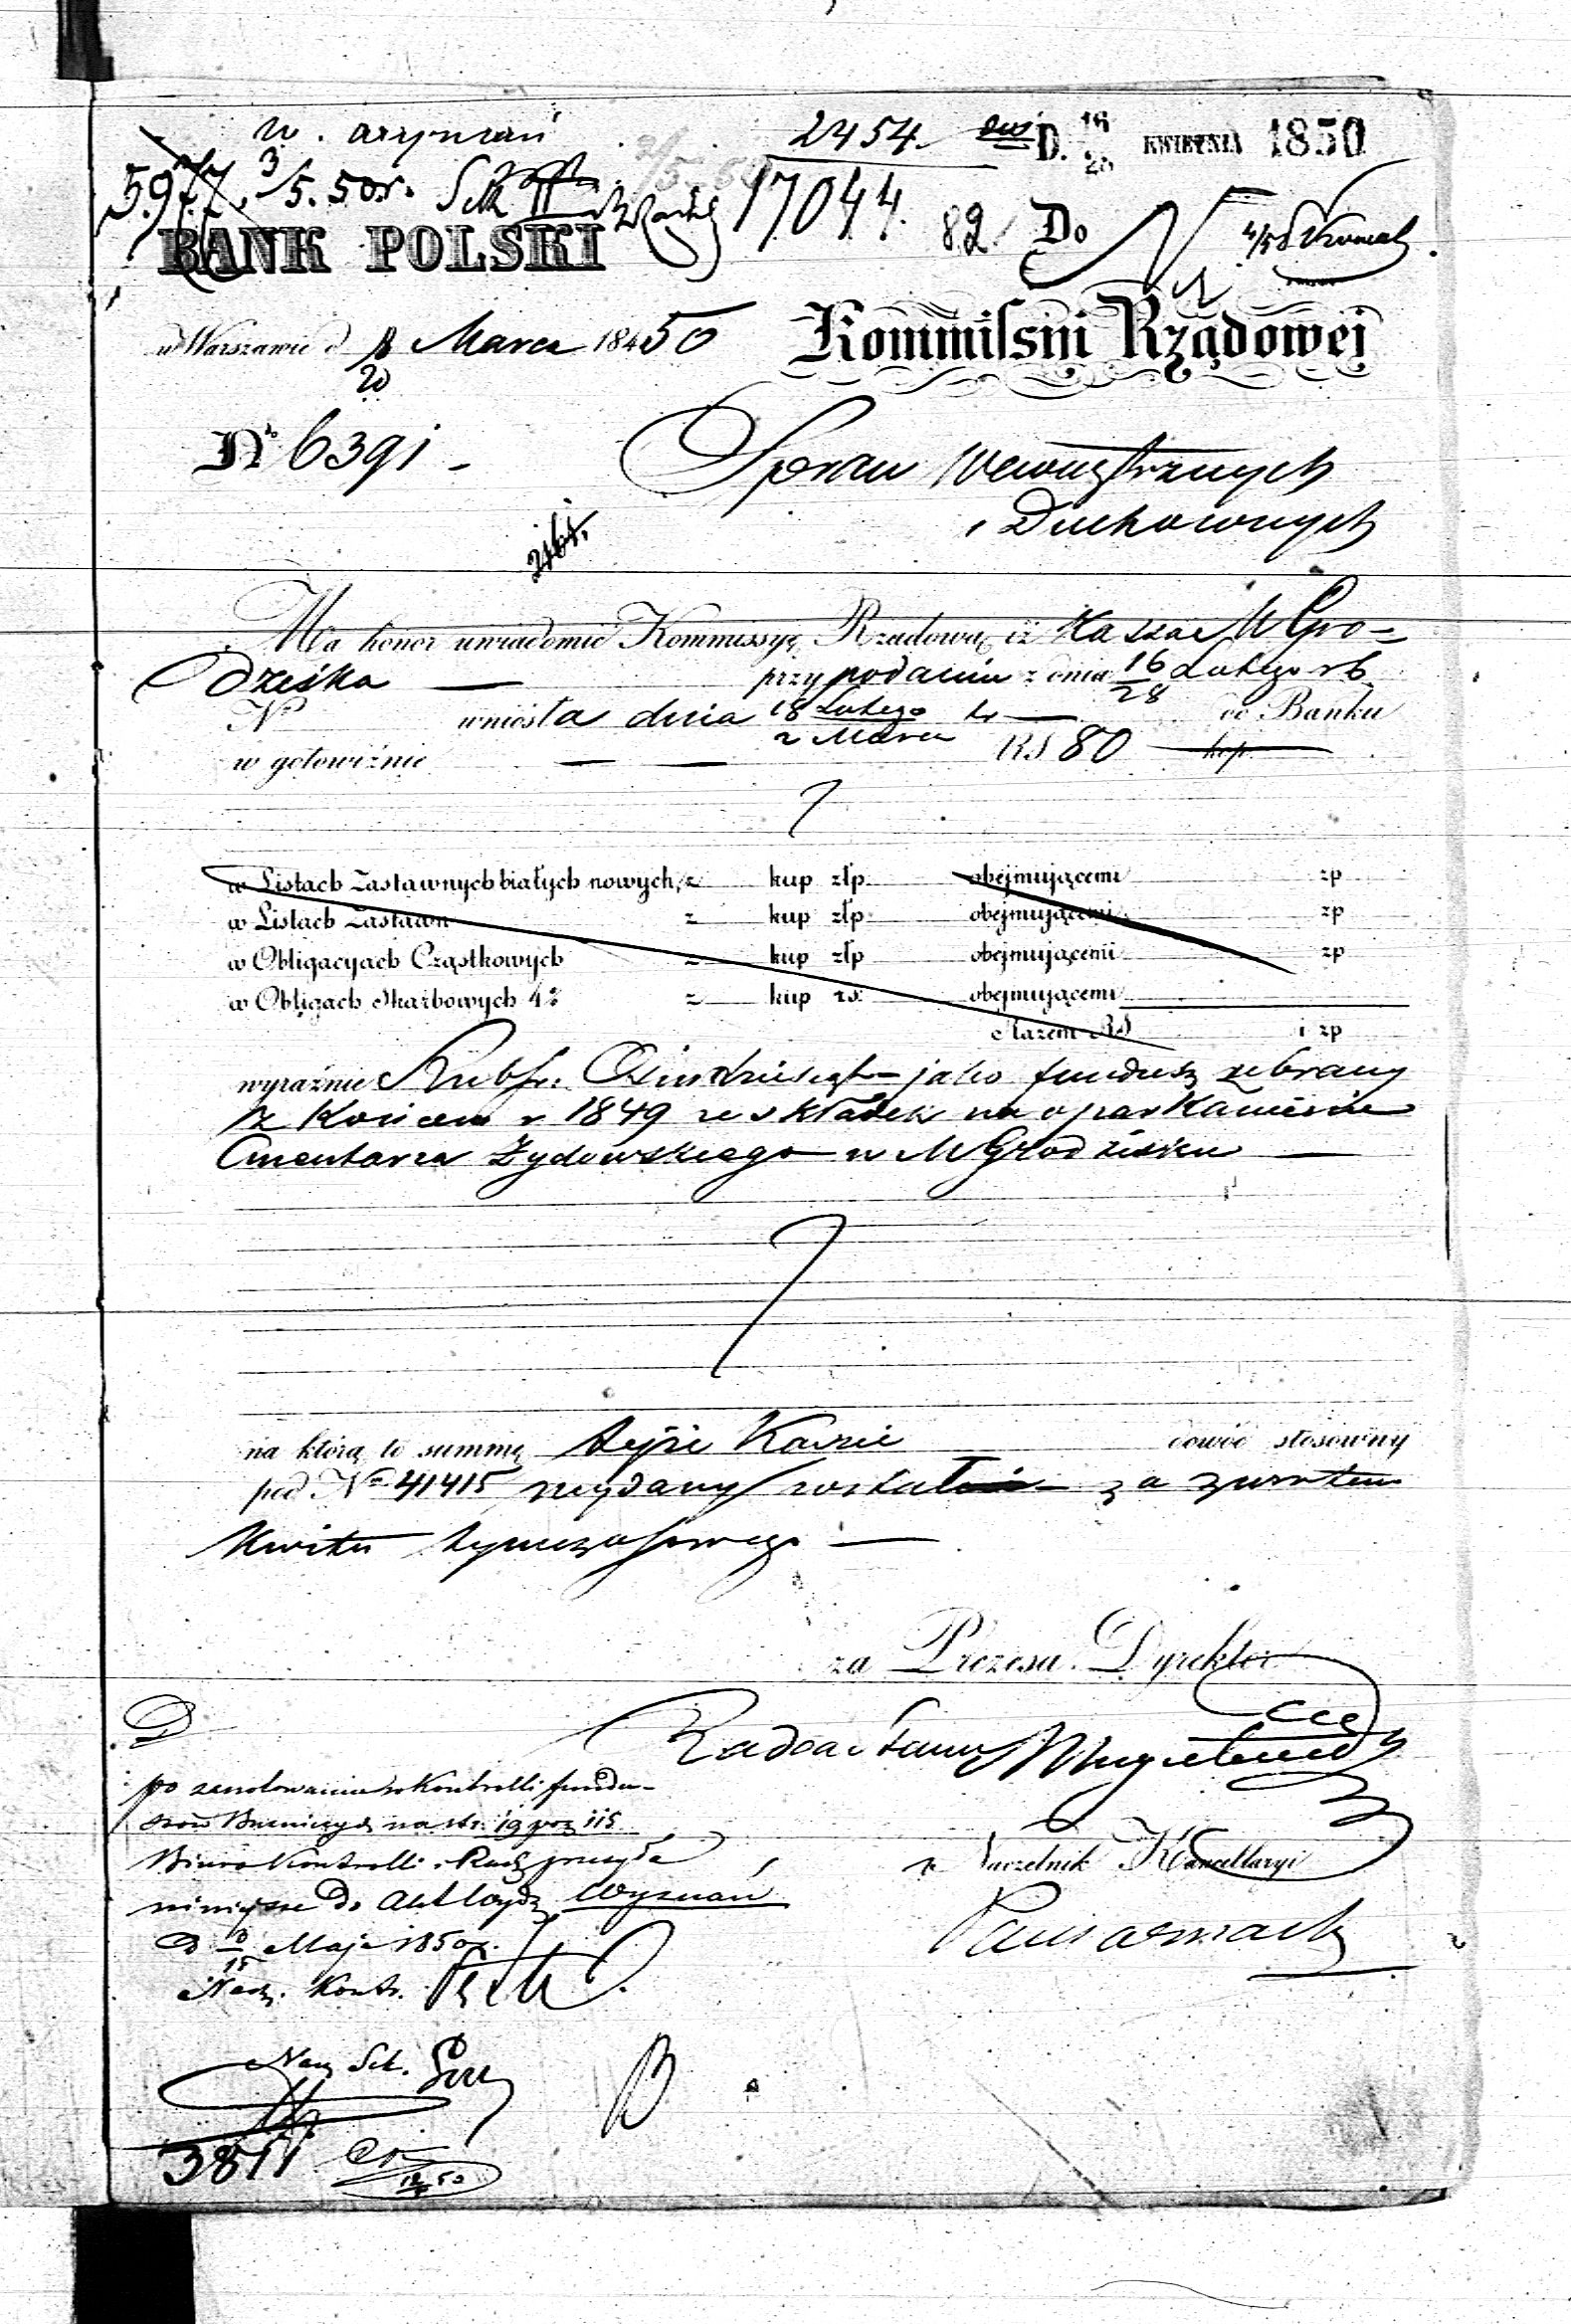 W. wyznań
2454. D. 16/28 KWIETNIA 1850
5977. 3/5. 50r. 17044. 82 Do
BANK POLSKI
w Warszawie d 8/20 Marca 18450
Kommissyi Rządowej
No 6391 -
Spraw Wewnętrznych
i Duchownych
Ma honor uwiadomić Kommissyę Rządową, iż Kassa M Gro=
dziska — przy podaniu z dnia 16/28 Lutego r b
No wniosła dnia 18 Lutego/2 Marca t r — do Banku
w gotowiźnie — — RS 80 — kop
w Listach Zastawnych białych nowych, z kup złp obejmującemi zp
w Listach Zastawn z kup złp obejmującemi zp
w Obligacyach Cząstkowych z kup złp obejmującemi zp
w Obligach Skarbowych 4% z kup rs: obejmującemi
Razem RS i zp
wyraźnie Rubsr. Ośmdziesiąt — jako fundusz zebrany
z końcem r 1849 ze składek na oparkanienie
Cmentarza Żydowskiego w M Grodzisku —
na którą to summę tejże Kassie dowód stosowny
pod No 41415 wydany został za zwrotem
Kwitu tymczasowego —
za Prezesa. Dyrektor
Radca Stanu
D
po zanotowaniu w Kontrolli fundu-
szów Bużniczych na str. 19 poz 115
Biuro Kontrolli i Rach przesyła
niniejsze do Akt Wydz Wyznań
D 3/15 Maja 1850 r.
Nacz. Kontr.
Naczelnik Kancellaryi
Nacz Sek.
3811